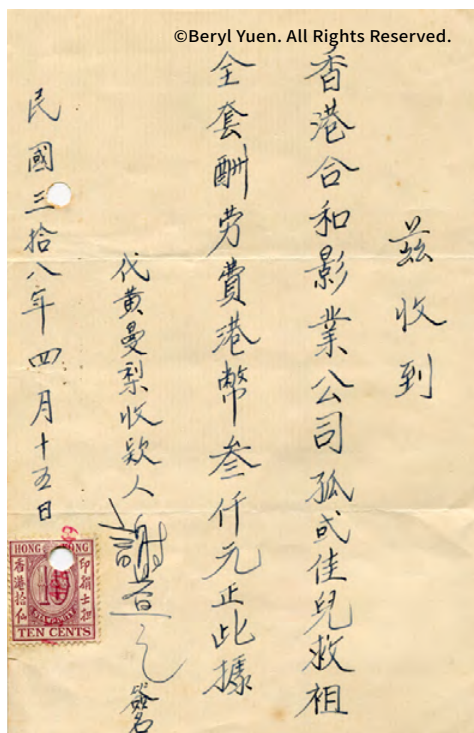 ©Beryl Yuen. All Rights Reserved.
茲收到
香港合和影業公司孤佳兒救祖
全套酬劳費港幣叁仟元正此據
代黃曼梨收欵人謝益之簽名
民國三拾八年四月十五日
HONG KONG
香港拾仙
印捐士担
TEN CENTS